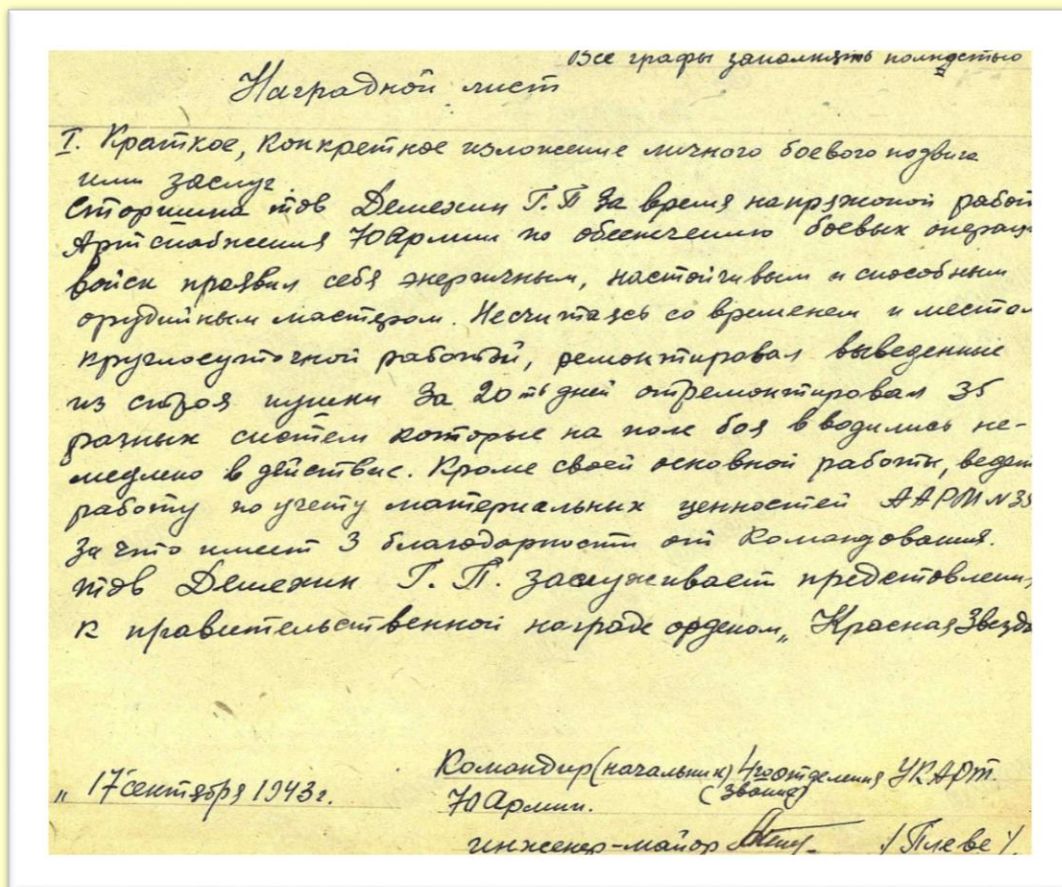 Все графы заполнять полностью
Наградной лист
I. Краткое, конкретное изложение личного боевого подвига
или заслуг.
Старшина тов Демехин Г.П За время напряжоной работ
Артснабжения 70 Армии по обеспечению боевых операц
войск проявил себя энергичным, настойчивым и способным
орудийным мастером. Несчитаясь со временем и местом
круглосуточной работой, ремонтировал выведенные
из строя пушки За 20ть дней отремонтировал 35
разных систем которые на поле боя вводились не-
медлено в действие. Кроме своей основной работы, ведет
работу по учету материальных ценностей ААРМ№35
За что имеет 3 благодарности от Командования.
тов Демехин Г. П. заслуживает представлени
к правительственной награде орденом „Красная Звезда
„17 сентября 1943г.
Командир (начальник) 4го отделения УКАРТ.
(звание)
70 Армии.
инженер-майор /Плеве/.